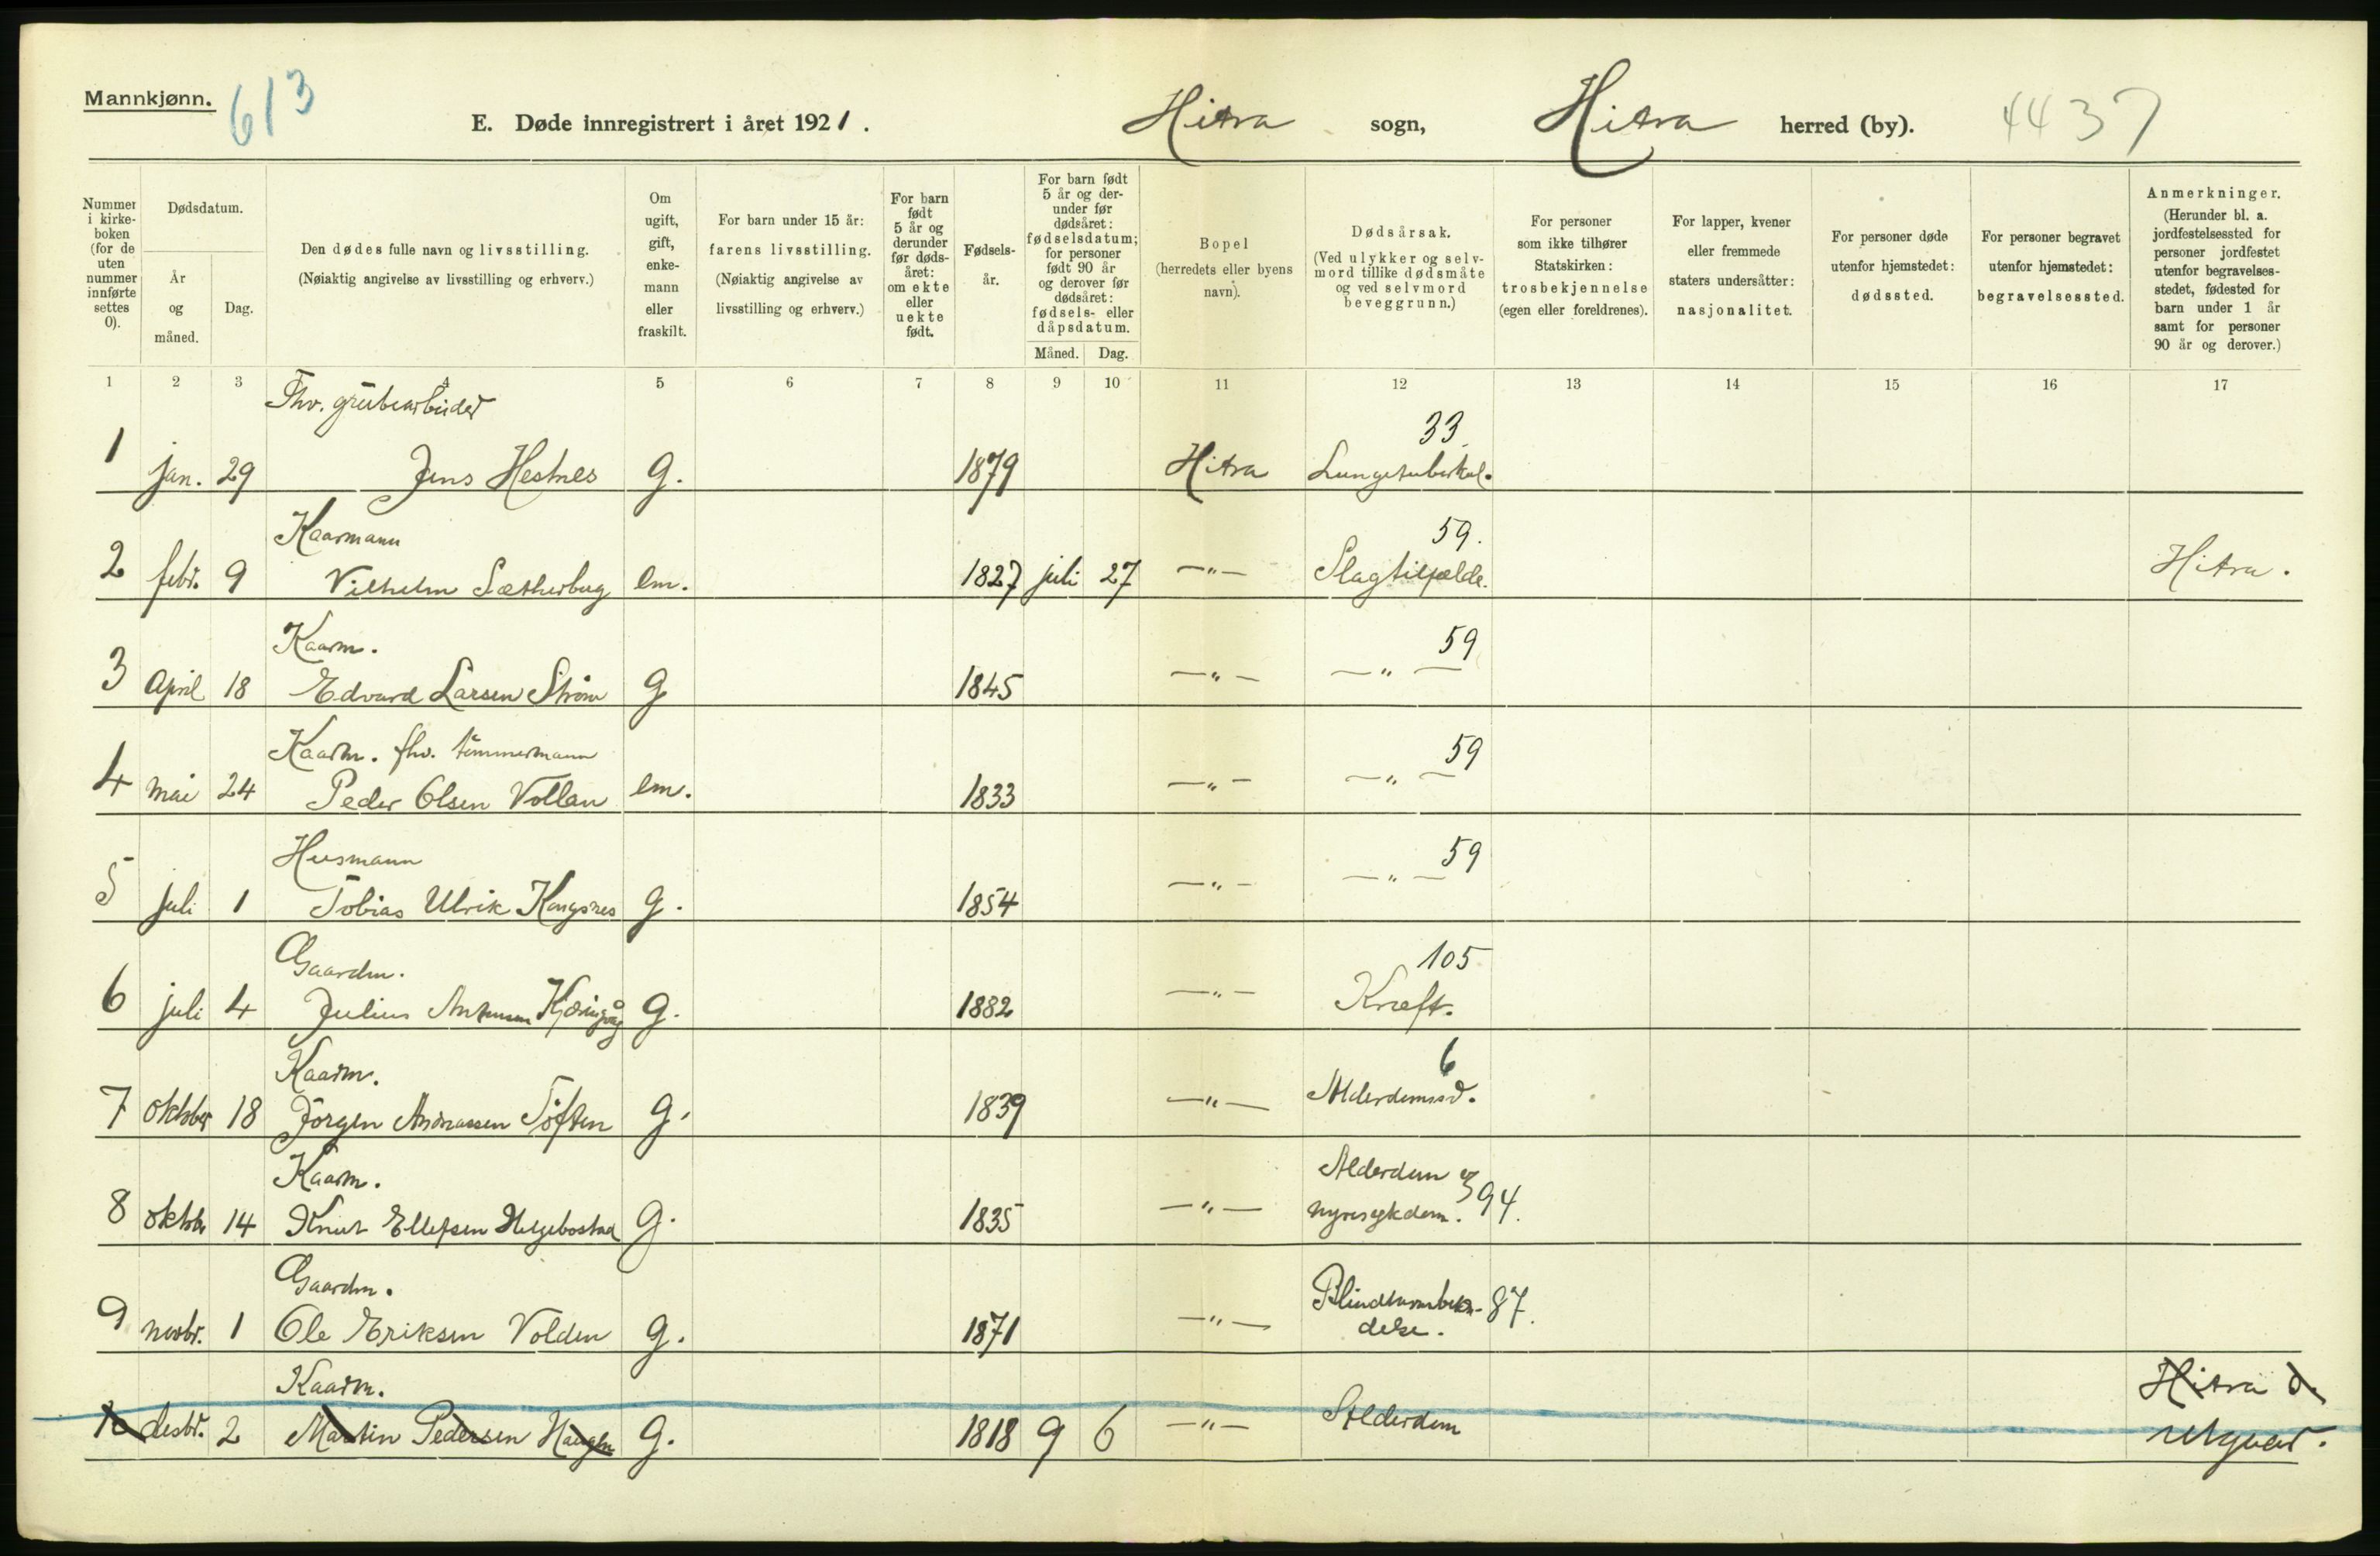 Mannkjønn.
613
E. Døde innregistrert i året 1921. Hitra sogn, Hitra herred (by). 4437
Nummer i kirke-boken (for de uten nummer innførte settes 0).
Dødsdatum.
År og måned.
Dag.
Den dødes fulle navn og livsstilling.
(Nøiaktig angivelse av livsstilling og erhverv.)
Om ugift, gift, enke-mann eller fraskilt.
For barn under 15 år: farens livsstilling. (Nøiaktig angivelse av livsstilling og erhverv.)
For barn født 5 år og derunder før døds-året: om ekte eller uekte født.
Fødsels-år.
For barn født 5 år og der-under før dødsåret: fødselsdatum; for personer født 90 år og derover før dødsåret: fødsels- eller dåpsdatum.
Måned. Dag.
Bopel (herredets eller byens navn).
Dødsårsak. (Ved ulykker og selv-mord tillike dødsmåte og ved selvmord beveggrunn.)
For personer som ikke tilhører Statskirken: trosbekjennelse (egen eller foreldrenes).
For lapper, kvener eller fremmede staters undersåtter: nasjonalitet.
For personer døde utenfor hjemstedet: dødssted.
For personer begravet utenfor hjemstedet: begravelsessted.
Anmerkninger. (Herunder bl. a. jordfestelsessted for personer jordfestet utenfor begravelses-stedet, fødested for barn under 1 år samt for personer 90 år og derover.)
1 2 3 4 5 6 7 8 9 10 11 12 13 14 15 16 17
Fhv. grubearbeider 33.
1 jan. 29 Jens Hestnes G. 1879 Hitra Lungetuberkul.
Kaarmann 59.
2 febr. 9 Vilhelm Sætherbug em. 1827 juli 27 —"— Slagtilfælde. Hitra.
Kaarm. 59
3 April 18 Edvard Larsen Strøm G 1845 —"— —"—
Kaarm. fhv. tømmermann 59
4 mai 24 Peder Olsen Vollan em. 1833 —"— —"—
Husmann 59
5 juli 1 Tobias Ulrik Kongsnes G. 1854 —"— —"—
Gaardm. 105
6 juli 4 Julius Antonsen Kjøringvåg G. 1882 —"— Kræft.
Kaarm. 6
7 oktober 18 Jørgen Andreassen Tøften G. 1839 —"— Alderdomssv.
Kaarm. Alderdom og
8 oktob. 14 Knut Ellefsen Helgebostad G. 1835 —"— nyresykdom. 94.
Gaardm. Blindtarmbeten- 87.
9 novbr. 1 Ole Eriksen Volden G. 1871 —"— delse.
Kaarm. Hitra d.
10 desbr. 2 Martin Pedersen Haugen G. 1818 9 6 —"— Alderdom utgaar.